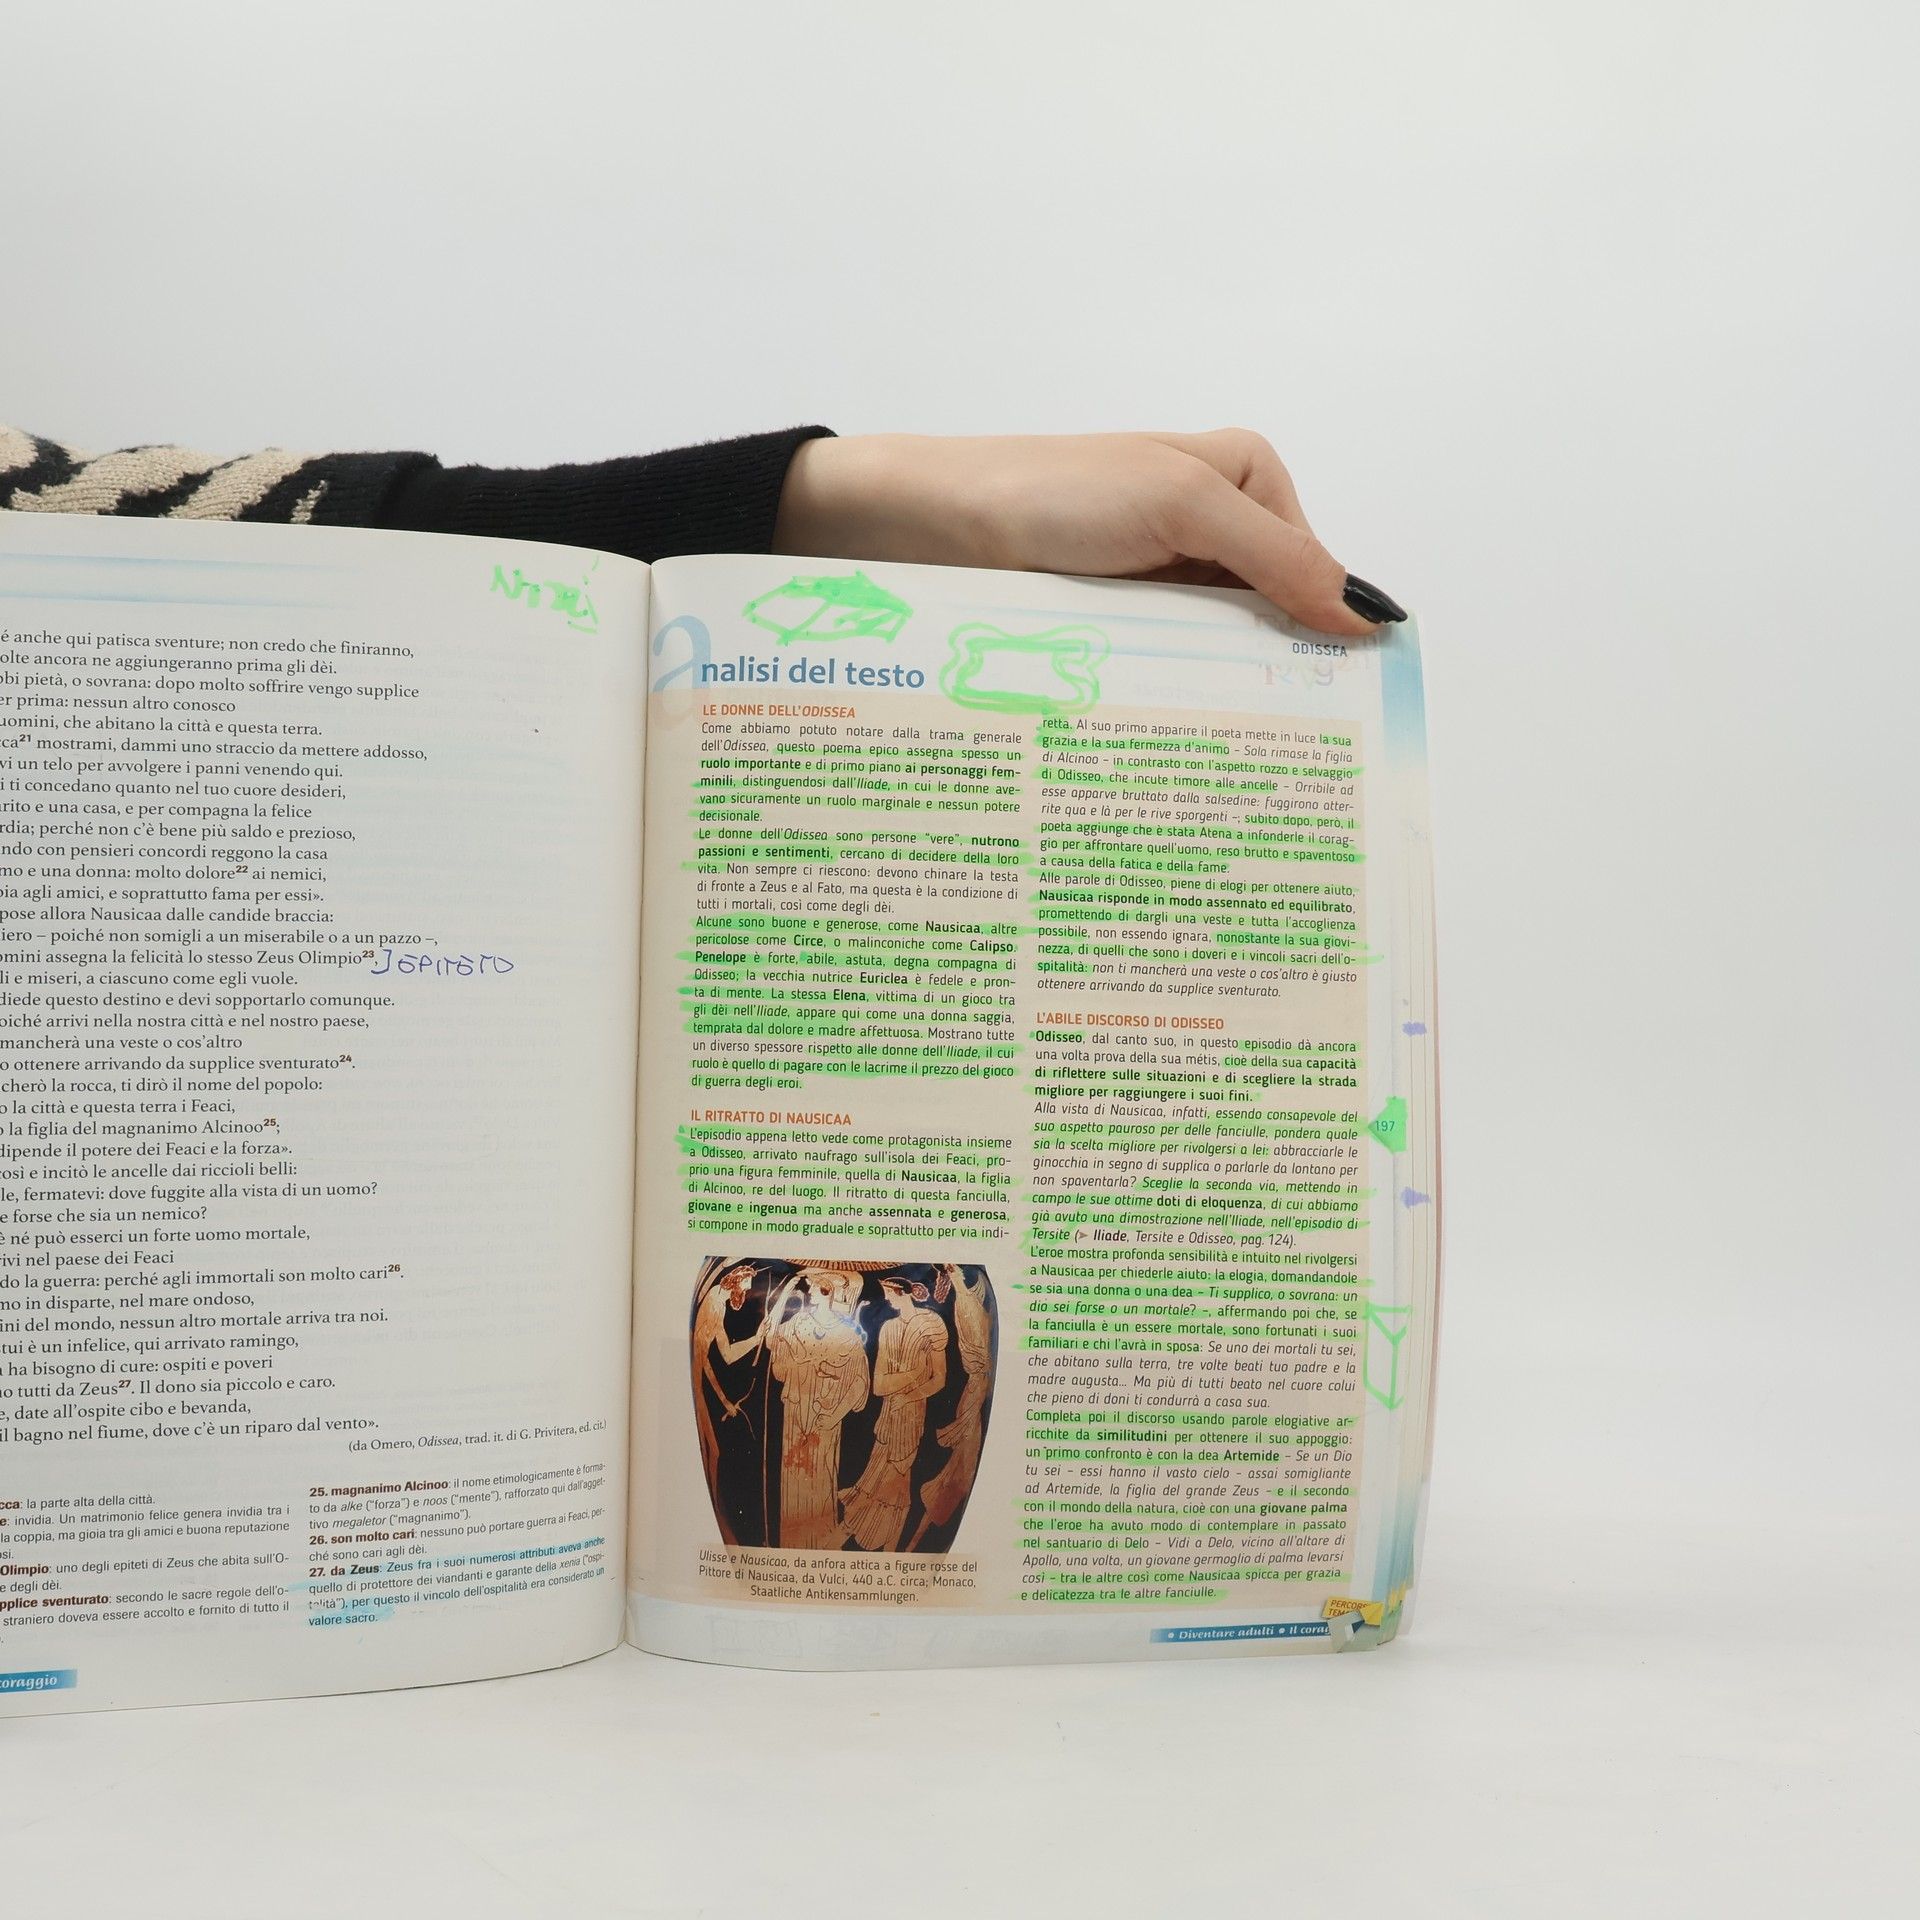 é anche qui patisca sventure; non credo che finiranno,
olte ancora ne aggiungeranno prima gli dèi.
bbi pietà, o sovrana: dopo molto soffrire vengo supplice
er prima: nessun altro conosco
uomini, che abitano la città e questa terra.
cca²¹ mostrami, dammi uno straccio da mettere addosso,
vi un telo per avvolgere i panni venendo qui.
i ti concedano quanto nel tuo cuore desideri,
arito e una casa, e per compagna la felice
rdia; perché non c'è bene più saldo e prezioso,
ando con pensieri concordi reggono la casa
mo e una donna: molto dolore²² ai nemici,
oia agli amici, e soprattutto fama per essi».
pose allora Nausicaa dalle candide braccia:
iero – poiché non somigli a un miserabile o a un pazzo –,
omini assegna la felicità lo stesso Zeus Olimpio²³, EPITETO
li e miseri, a ciascuno come egli vuole.
diede questo destino e devi sopportarlo comunque.
oiché arrivi nella nostra città e nel nostro paese,
mancherà una veste o cos'altro
o ottenere arrivando da supplice sventurato²⁴.
cherò la rocca, ti dirò il nome del popolo:
o la città e questa terra i Feaci,
o la figlia del magnanimo Alcinoo²⁵;
dipende il potere dei Feaci e la forza».
così e incitò le ancelle dai riccioli belli:
le, fermatevi: dove fuggite alla vista di un uomo?
e forse che sia un nemico?
è né può esserci un forte uomo mortale,
rivi nel paese dei Feaci
do la guerra: perché agli immortali son molto cari²⁶.
mo in disparte, nel mare ondoso,
ini del mondo, nessun altro mortale arriva tra noi.
tui è un infelice, qui arrivato ramingo,
a ha bisogno di cure: ospiti e poveri
no tutti da Zeus²⁷. Il dono sia piccolo e caro.
e, date all'ospite cibo e bevanda,
il bagno nel fiume, dove c'è un riparo dal vento».
(da Omero, Odissea, trad. it. di G. Privitera, ed. cit.)
cca: la parte alta della città.
e: invidia. Un matrimonio felice genera invidia tra i
la coppia, ma gioia tra gli amici e buona reputazione
osi.
Olimpio: uno degli epiteti di Zeus che abita sull'O-
e degli dèi.
pplice sventurato: secondo le sacre regole dell'o-
straniero doveva essere accolto e fornito di tutto il
25. magnanimo Alcinoo: il nome etimologicamente è forma-
to da alke ("forza") e noos ("mente"), rafforzato qui dall'agget-
tivo megaletor ("magnanimo").
26. son molto cari: nessuno può portare guerra ai Feaci, per-
ché sono cari agli dèi.
27. da Zeus: Zeus fra i suoi numerosi attributi aveva anche
quello di protettore dei viandanti e garante della xenia ("ospi-
talità"), per questo il vincolo dell'ospitalità era considerato un
valore sacro.
coraggio
ODISSEA
analisi del testo
LE DONNE DELL'ODISSEA
Come abbiamo potuto notare dalla trama generale
dell'Odissea, questo poema epico assegna spesso un
ruolo importante e di primo piano ai personaggi fem-
minili, distinguendosi dall'Iliade, in cui le donne ave-
vano sicuramente un ruolo marginale e nessun potere
decisionale.
Le donne dell'Odissea sono persone "vere", nutrono
passioni e sentimenti, cercano di decidere della loro
vita. Non sempre ci riescono: devono chinare la testa
di fronte a Zeus e al Fato, ma questa è la condizione di
tutti i mortali, così come degli dèi.
Alcune sono buone e generose, come Nausicaa, altre
pericolose come Circe, o malinconiche come Calipso.
Penelope è forte, abile, astuta, degna compagna di
Odisseo; la vecchia nutrice Euriclea è fedele e pron-
ta di mente. La stessa Elena, vittima di un gioco tra
gli dèi nell'Iliade, appare qui come una donna saggia,
temprata dal dolore e madre affettuosa. Mostrano tutte
un diverso spessore rispetto alle donne dell'Iliade, il cui
ruolo è quello di pagare con le lacrime il prezzo del gioco
di guerra degli eroi.
IL RITRATTO DI NAUSICAA
L'episodio appena letto vede come protagonista insieme
a Odisseo, arrivato naufrago sull'isola dei Feaci, pro-
prio una figura femminile, quella di Nausicaa, la figlia
di Alcinoo, re del luogo. Il ritratto di questa fanciulla,
giovane e ingenua ma anche assennata e generosa,
si compone in modo graduale e soprattutto per via indi-
Ulisse e Nausicaa, da anfora attica a figure rosse del
Pittore di Nausicaa, da Vulci, 440 a.C. circa; Monaco,
Staatliche Antikensammlungen.
retta. Al suo primo apparire il poeta mette in luce la sua
grazia e la sua fermezza d'animo – Sola rimase la figlia
di Alcinoo – in contrasto con l'aspetto rozzo e selvaggio
di Odisseo, che incute timore alle ancelle – Orribile ad
esse apparve bruttato dalla salsedine: fuggirono atter-
rite qua e là per le rive sporgenti –; subito dopo, però, il
poeta aggiunge che è stata Atena a infonderle il corag-
gio per affrontare quell'uomo, reso brutto e spaventoso
a causa della fatica e della fame.
Alle parole di Odisseo, piene di elogi per ottenere aiuto,
Nausicaa risponde in modo assennato ed equilibrato,
promettendo di dargli una veste e tutta l'accoglienza
possibile, non essendo ignara, nonostante la sua giovi-
nezza, di quelli che sono i doveri e i vincoli sacri dell'o-
spitalità: non ti mancherà una veste o cos'altro è giusto
ottenere arrivando da supplice sventurato.
L'ABILE DISCORSO DI ODISSEO
Odisseo, dal canto suo, in questo episodio dà ancora
una volta prova della sua métis, cioè della sua capacità
di riflettere sulle situazioni e di scegliere la strada
migliore per raggiungere i suoi fini.
Alla vista di Nausicaa, infatti, essendo consapevole del
suo aspetto pauroso per delle fanciulle, pondera quale
sia la scelta migliore per rivolgersi a lei: abbracciarle le
ginocchia in segno di supplica o parlarle da lontano per
non spaventarla? Sceglie la seconda via, mettendo in
campo le sue ottime doti di eloquenza, di cui abbiamo
già avuto una dimostrazione nell'Iliade, nell'episodio di
Tersite (➤ Iliade, Tersite e Odisseo, pag. 124).
L'eroe mostra profonda sensibilità e intuito nel rivolgersi
a Nausicaa per chiederle aiuto: la elogia, domandandole
se sia una donna o una dea – Ti supplico, o sovrana: un
dio sei forse o un mortale? –, affermando poi che, se
la fanciulla è un essere mortale, sono fortunati i suoi
familiari e chi l'avrà in sposa: Se uno dei mortali tu sei,
che abitano sulla terra, tre volte beati tuo padre e la
madre augusta... Ma più di tutti beato nel cuore colui
che pieno di doni ti condurrà a casa sua.
Completa poi il discorso usando parole elogiative ar-
ricchite da similitudini per ottenere il suo appoggio:
un primo confronto è con la dea Artemide – Se un Dio
tu sei – essi hanno il vasto cielo – assai somigliante
ad Artemide, la figlia del grande Zeus – e il secondo
con il mondo della natura, cioè con una giovane palma
che l'eroe ha avuto modo di contemplare in passato
nel santuario di Delo – Vidi a Delo, vicino all'altare di
Apollo, una volta, un giovane germoglio di palma levarsi
così – tra le altre così come Nausicaa spicca per grazia
e delicatezza tra le altre fanciulle.
197
PERCORSI
• Diventare adulti • Il corag